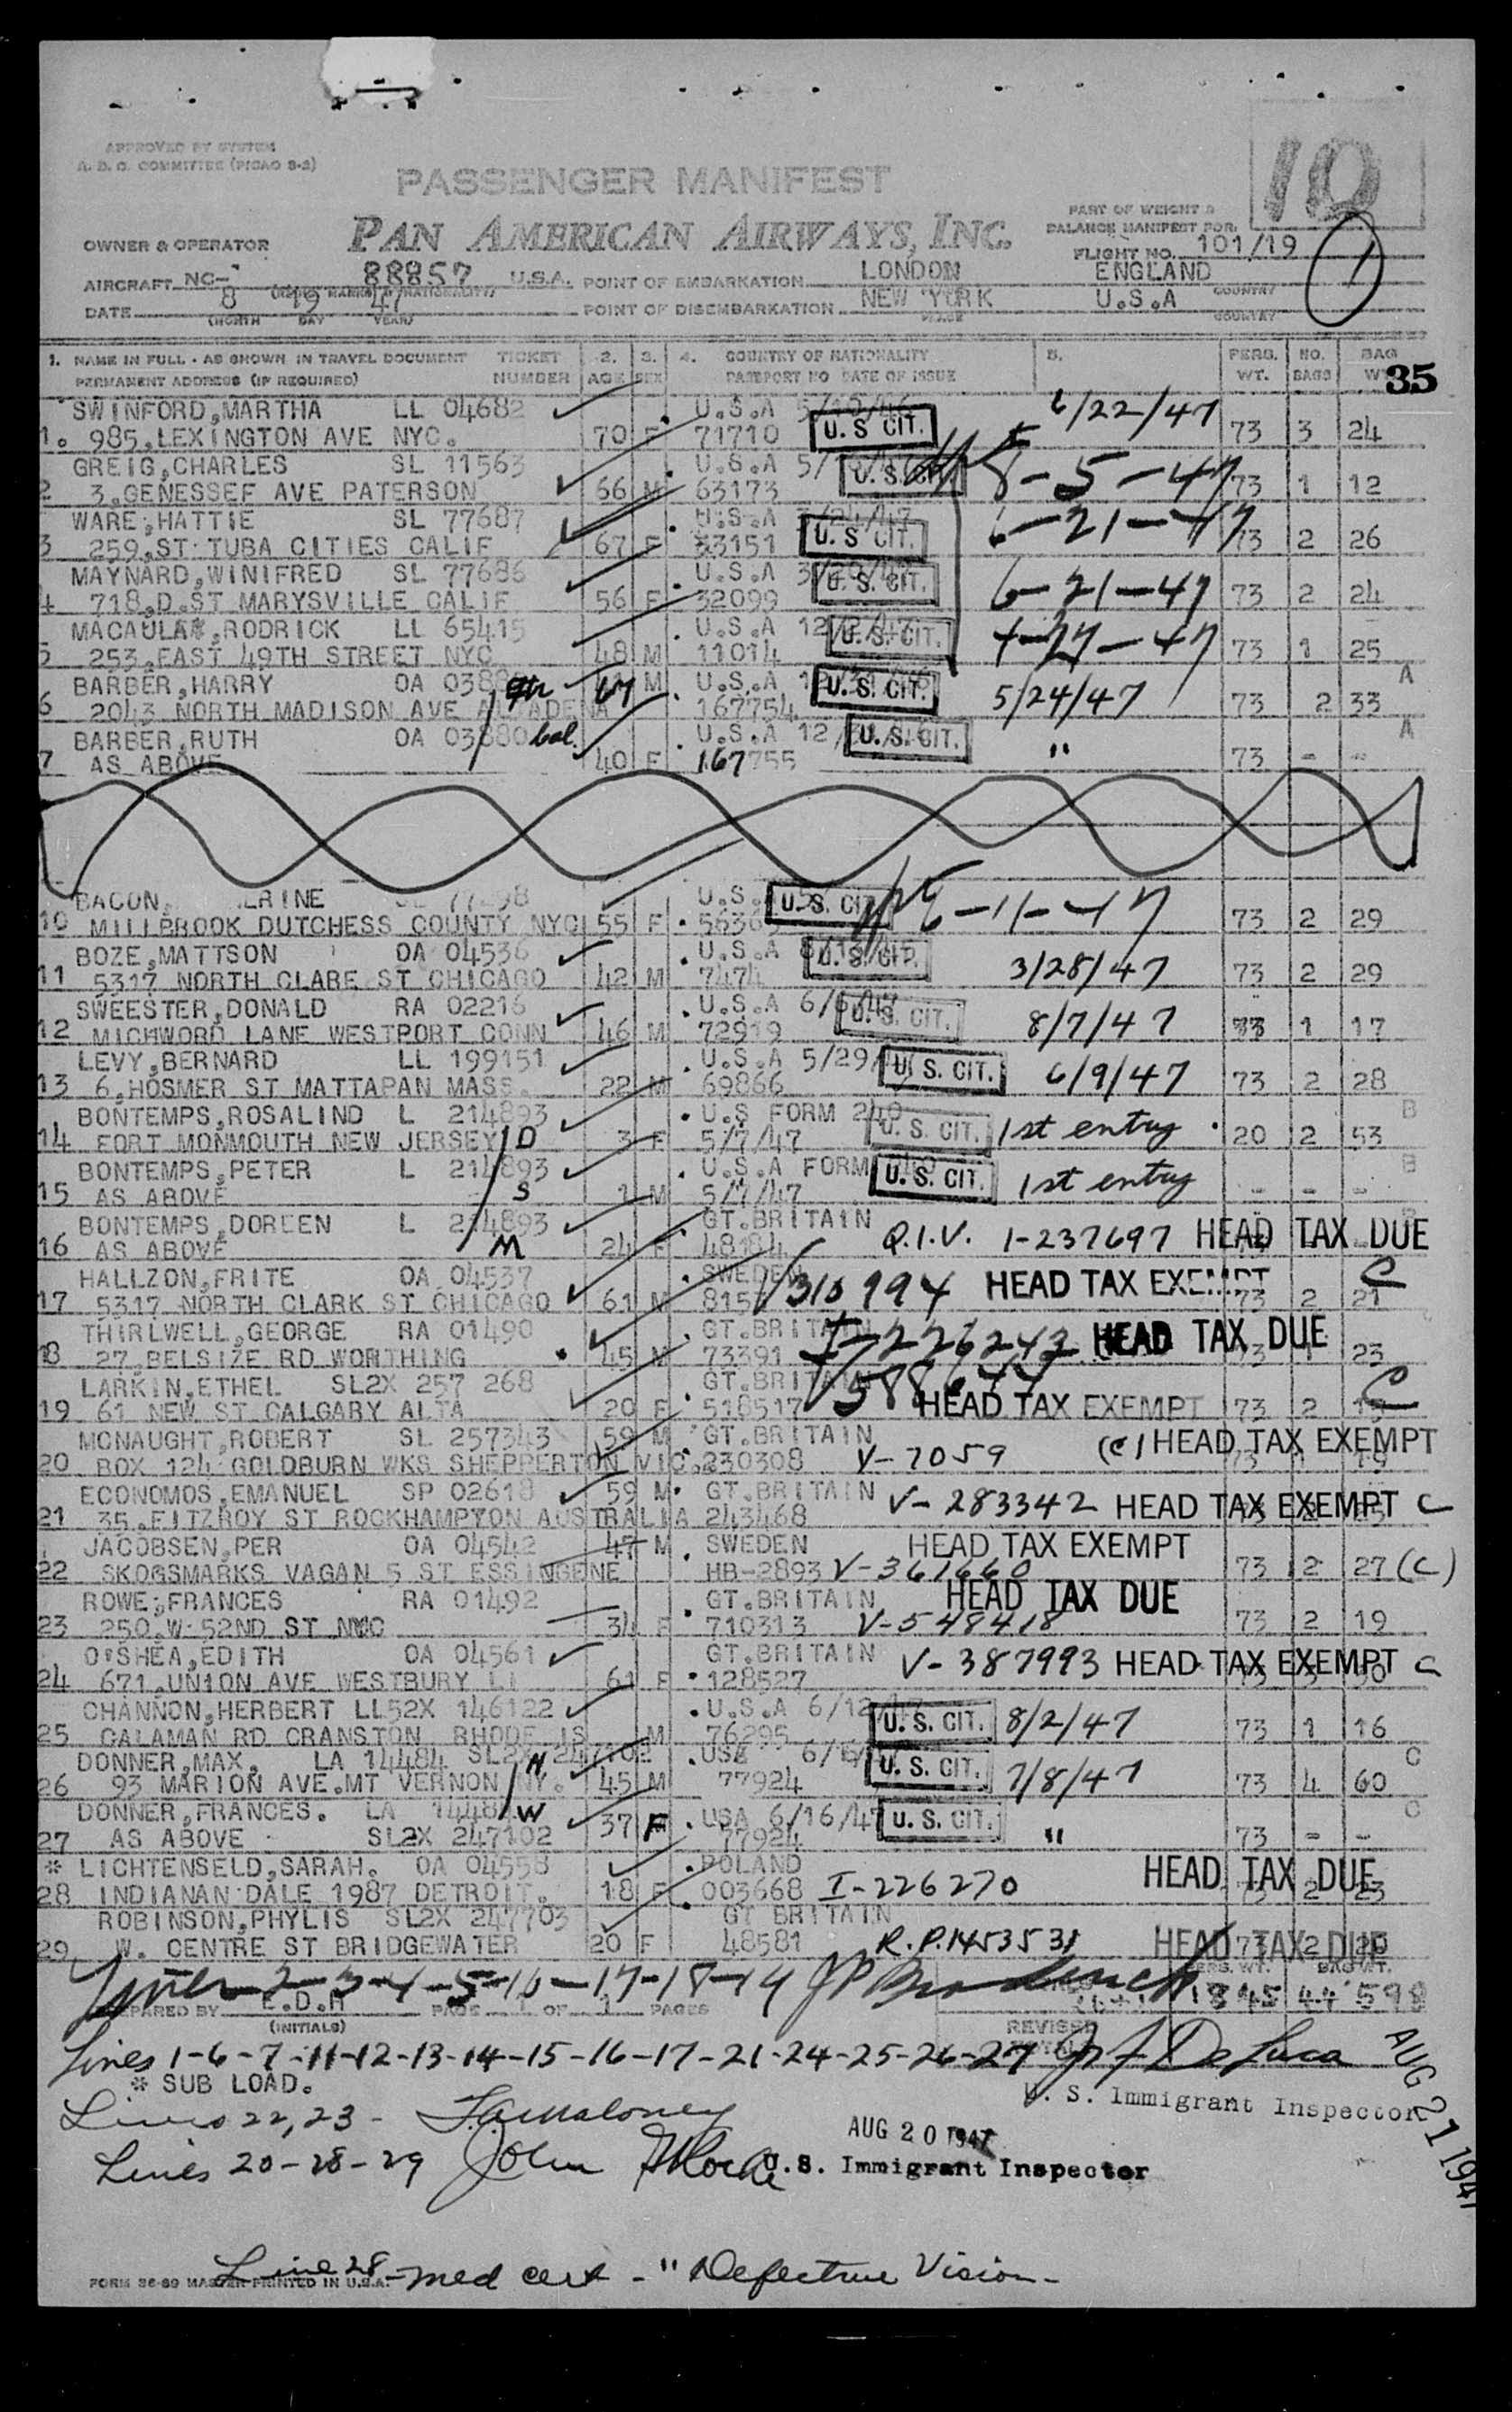 APPROVED BY SYSTEM
A. D. C. COMMITTEE (PICAO 8-2)
PASSENGER MANIFEST
10
PAN AMERICAN AIRWAYS, INC.
PART OF WEIGHT &
BALANCE MANIFEST FOR:
FLIGHT NO. 101/19
1
OWNER & OPERATOR
AIRCRAFT NC- 88857 U.S.A. POINT OF EMBARKATION LONDON ENGLAND COUNTRY
DATE 8 19 47 POINT OF DISEMBARKATION NEW YORK U.S.A COUNTRY
(MONTH DAY YEAR) PLACE
1. NAME IN FULL - AS SHOWN IN TRAVEL DOCUMENT TICKET 2. 3. 4. COUNTRY OF NATIONALITY 5. PERS. NO. BAG
PERMANENT ADDRESS (IF REQUIRED) NUMBER AGE SEX PASSPORT NO DATE OF ISSUE WT. BAGS WT
35
SWINFORD,MARTHA LL 04682 U.S.A 5/10/46 6/22/47
1. 985,LEXINGTON AVE NYC. 70 F 71710 U.S CIT. 73 3 24
GREIG,CHARLES SL 11563 U.S.A 8-5-47
2 3,GENESSEF AVE PATERSON 66 M 63173 U.S.CIT. 73 1 12
WARE,HATTIE SL 77687 U.S.A 6-21-47
3 259,ST TUBA CITIES CALIF 67 F 33151 U.S CIT. 73 2 26
MAYNARD,WINIFRED SL 77686 U.S.A
4 718,D.ST MARYSVILLE CALIF 56 F 32099 U.S. CIT. 6-21-47 73 2 24
MACAULAY,RODRICK LL 65415 U.S.A
5 253,EAST 49TH STREET NYC 48 M 11014 U.S. CIT. 4-27-47 73 1 25
BARBER,HARRY OA M U.S.A U.S. CIT. 5/24/47 A
6 2043 NORTH MADISON AVE ALTADENA 167754 73 2 33
BARBER,RUTH OA 03880 Cal. U.S.A 12 U.S. CIT. " A
7 AS ABOVE 40 F 167755 73 - -
BACON, U.S. U.S. CIT
10 MILLBROOK DUTCHESS COUNTY NYC 55 F 6-11-47 73 2 29
BOZE,MATTSON OA 04536 U.S.A U.S. CIT.
11 5317 NORTH CLARE ST CHICAGO 42 M 7474 3/28/47 73 2 29
SWEESTER,DONALD RA 02216 U.S.A U.S. CIT.
12 MICHWORD LANE WESTPORT CONN 46 M 72919 8/7/47 73 1 17
LEVY,BERNARD LL 199151 U.S.A 5/29/ U.S. CIT.
13 6,HOSMER ST MATTAPAN MASS. 22 M 69866 6/9/47 73 2 28
BONTEMPS,ROSALIND L 214893 U.S FORM 240 B
14 FORT MONMOUTH NEW JERSEY D 3 F 5/7/47 U.S. CIT. 1st entry 20 2 53
BONTEMPS,PETER L 214893 U.S.A FORM U.S. CIT. B
15 AS ABOVE S 1 M 5/7/47 1st entry - - -
BONTEMPS,DOREEN L 214893 GT.BRITAIN
16 AS ABOVE M 24 F 48184 Q.I.V. 1-237697 HEAD TAX DUE
HALLZON,FRITE OA 04537 SWEDEN C
17 5317 NORTH CLARK ST CHICAGO 61 M V310994 HEAD TAX EXEMPT 73 2 21
THIRLWELL,GEORGE RA 01490 GT.BRITAIN
18 27,BELSIZE RD WORTHING 45 M 73391 I-226243 HEAD TAX DUE 73 1 23
LARKIN,ETHEL SL2X 257 268 GT.BRITAIN C
19 61 NEW ST CALGARY ALTA 20 F 518517 HEAD TAX EXEMPT 73 2
MCNAUGHT,ROBERT SL 257343 59 M GT.BRITAIN
20 BOX 124 GOLDBURN WKS SHEPPERTON VIC. 230308 V-7059 (C) HEAD TAX EXEMPT
ECONOMOS,EMANUEL SP 02618 59 M GT.BRITAIN
21 35.FITZROY ST ROCKHAMPTON AUSTRALIA 243468 V-283342 HEAD TAX EXEMPT C
JACOBSEN,PER OA 04542 47 M SWEDEN HEAD TAX EXEMPT
22 SKOGSMARKS VAGAN 5 ST ESSINGENE HB-2893 V-361660 73 2 27 (C)
ROWE,FRANCES RA 01492 GT.BRITAIN HEAD TAX DUE
23 250.W 52ND ST NYC 34 F 710313 V-548418 73 2 19
O'SHEA,EDITH OA 04561 GT.BRITAIN
24 671,UNION AVE WESTBURY LI 61 F 128527 V-387993 HEAD TAX EXEMPT C
CHANNON,HERBERT LL52X 146122 U.S.A 6/12/
25 CALAMAN RD CRANSTON RHODE IS M 76295 U.S. CIT. 8/2/47 73 1 16
DONNER,MAX. LA 14484 SL2X 247102 USA C
26 93 MARION AVE.MT VERNON NY. H 45 M 77924 U.S. CIT. 7/8/47 73 4 60
DONNER,FRANCES. LA W 37 F USA 6/16/47 U.S. CIT. C
27 AS ABOVE SL2X 247102 77924 " 73 - -
* LICHTENSELD,SARAH. OA 04558 POLAND
28 INDIANAN DALE 1987 DETROIT. 18 F 003668 I-226270 HEAD TAX DUE 73 2 23
ROBINSON,PHYLIS SL2X 247703 GT BRITAIN
29 W. CENTRE ST BRIDGEWATER 20 F 48581 R.P.1453531 HEAD TAX DUE 73 2 20
Lines 2-3-4-5-10-17-18-19
PREPARED BY E.D.H PAGE 1 OF 1 PAGES PERS. WT. BAG WT. 1845 44 598
(INITIALS)
REVISED
Lines 1-6-7-11-12-13-14-15-16-17-21-24-25-26-27 De Luca
* SUB LOAD.
U. S. Immigrant Inspector
AUG 21 1947
Lines 22,23 - Maloney
AUG 20 1947
Lines 20-28-29 John U.S. Immigrant Inspector
Line 28 - med cert - "Defective Vision-
FORM 36-89 MASTER-PRINTED IN U.S.A.